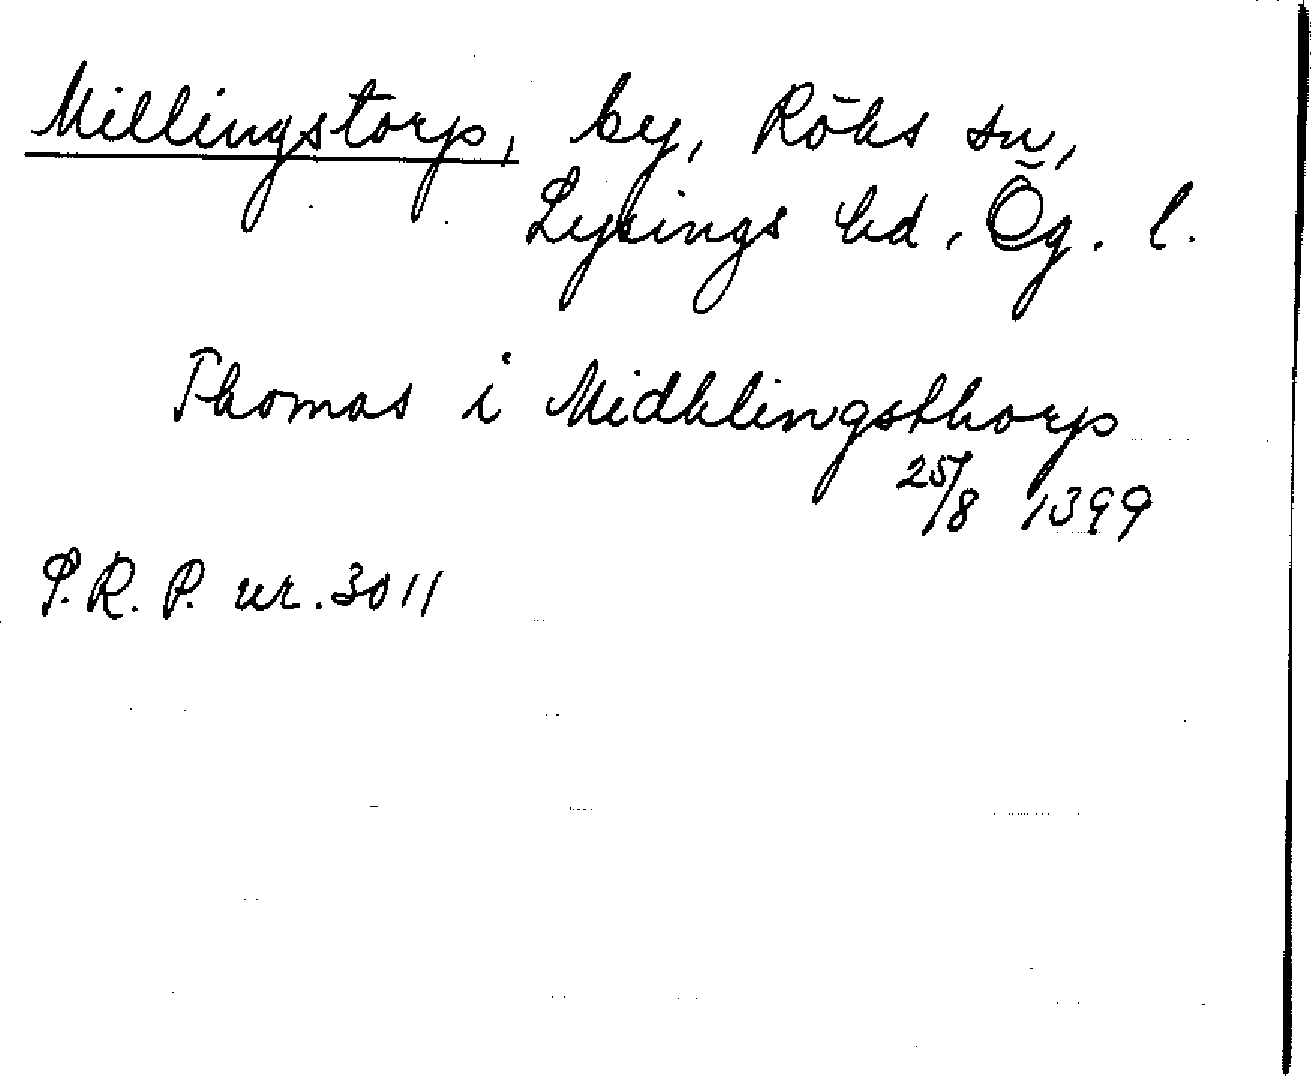 Millingstorp, by, Röks sn,
Lysings hd, Ög. l.
Thomas i Midhlingsthorp
25/8 1399
S.R.P. nr. 3011